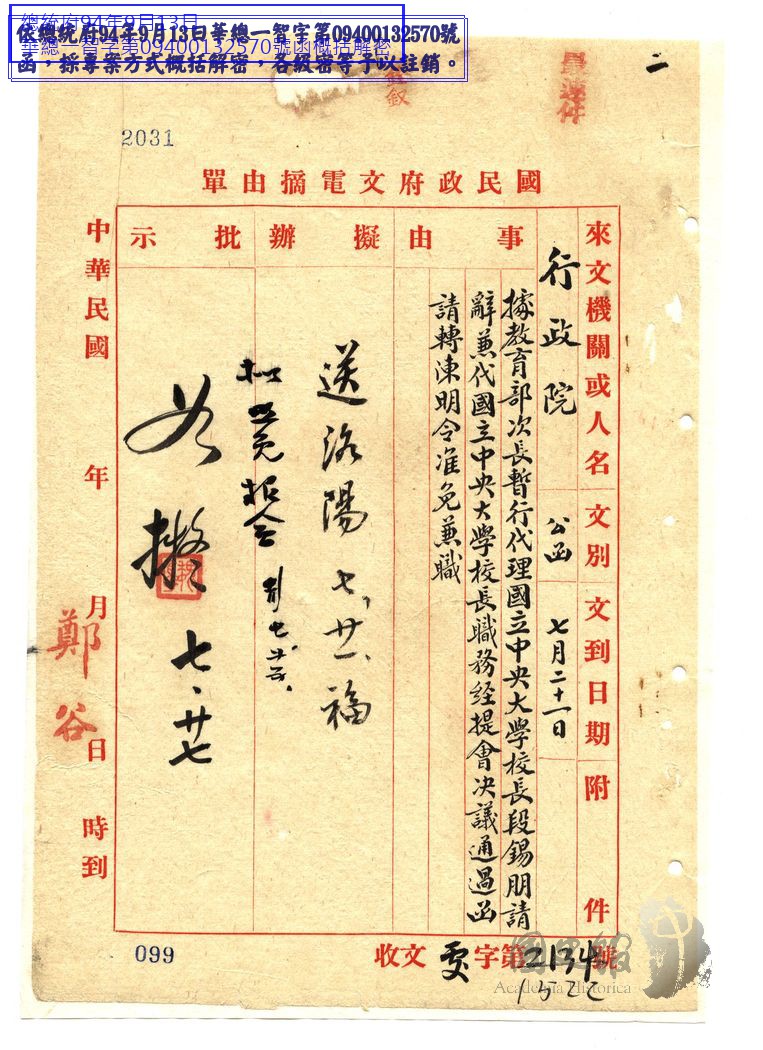 總統府94年9月13日
華總一智字第09400132570號函概括解密
依總統府94年9月13日華總一智字第09400132570號
函，採專案方式概括解密，各級密等予以註銷。
最速件
敘
二
2031
國民政府文電摘由單
來文機關或人名
行政院
文別
公函
文到日期
七月二十一日
附件
事由
據教育部次長暫行代理國立中央大學校長段錫朋請
辭兼代國立中央大學校長職務経提會決議通過函
請轉陳明令准免兼職
擬辦
送洛陽 七、廿一、福
批示
如擬 七、廿七
中華民國 年 月 日 時到
鄭谷
099
收文 字第2134號
國史館
Academia Historica